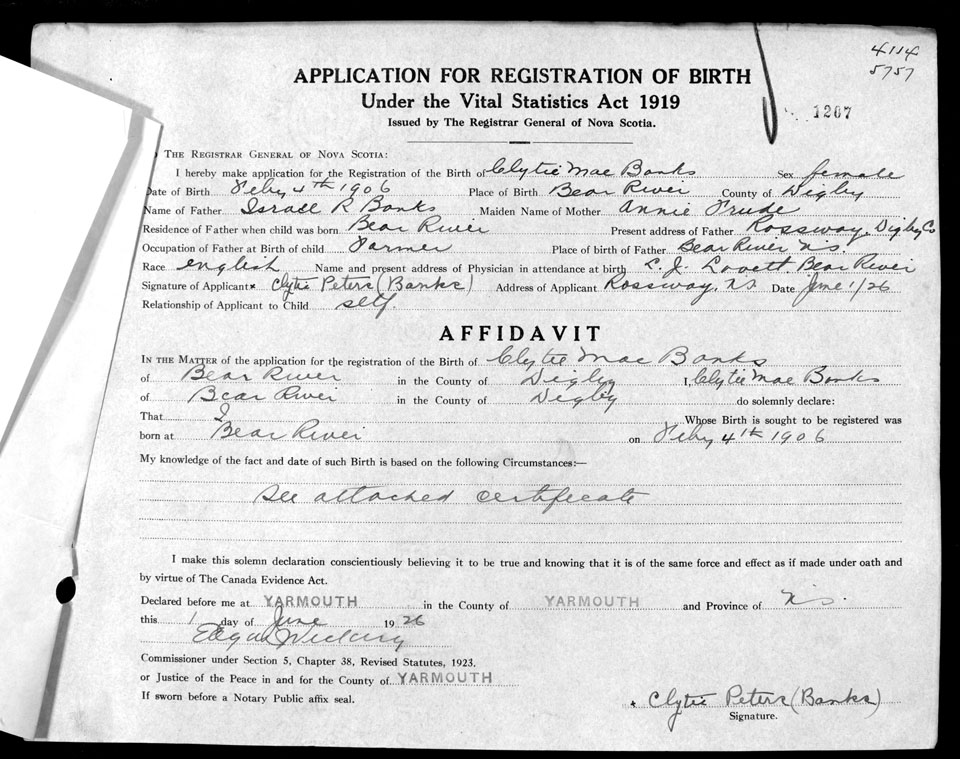 4114
5757
APPLICATION FOR REGISTRATION OF BIRTH
Under the Vital Statistics Act 1919
Issued by The Registrar General of Nova Scotia.
1207
The Registrar General of Nova Scotia:
I hereby make application for the Registration of the Birth of Clytie Mae Banks Sex female
Date of Birth Feby 4th 1906 Place of Birth Bear River County of Digby
Name of Father Israel R Banks Maiden Name of Mother Annie Prude
Residence of Father when child was born Bear River Present address of Father Rossway, Digby Co
Occupation of Father at Birth of child Farmer Place of birth of Father Bear River N.S.
Race english Name and present address of Physician in attendance at birth L. J. Lovett. Bear River
Signature of Applicant x Clytie Peters (Banks) Address of Applicant Rossway, N.S Date June 1/26
Relationship of Applicant to Child self.
AFFIDAVIT
In the Matter of the application for the registration of the Birth of Clytie Mae Banks
of Bear River in the County of Digby I, Clytie Mae Banks
of Bear River in the County of Digby do solemnly declare:
That I Whose Birth is sought to be registered was
born at Bear River on Feby 4th 1906
My knowledge of the fact and date of such Birth is based on the following Circumstances:—
See attached certificate
I make this solemn declaration conscientiously believing it to be true and knowing that it is of the same force and effect as if made under oath and
by virtue of The Canada Evidence Act.
Declared before me at YARMOUTH in the County of YARMOUTH and Province of N.S.
this 1 day of June 1926
Edgar
Commissioner under Section 5, Chapter 38, Revised Statutes, 1923.
or Justice of the Peace in and for the County of YARMOUTH
If sworn before a Notary Public affix seal.
x Clytie Peters (Banks)
Signature.